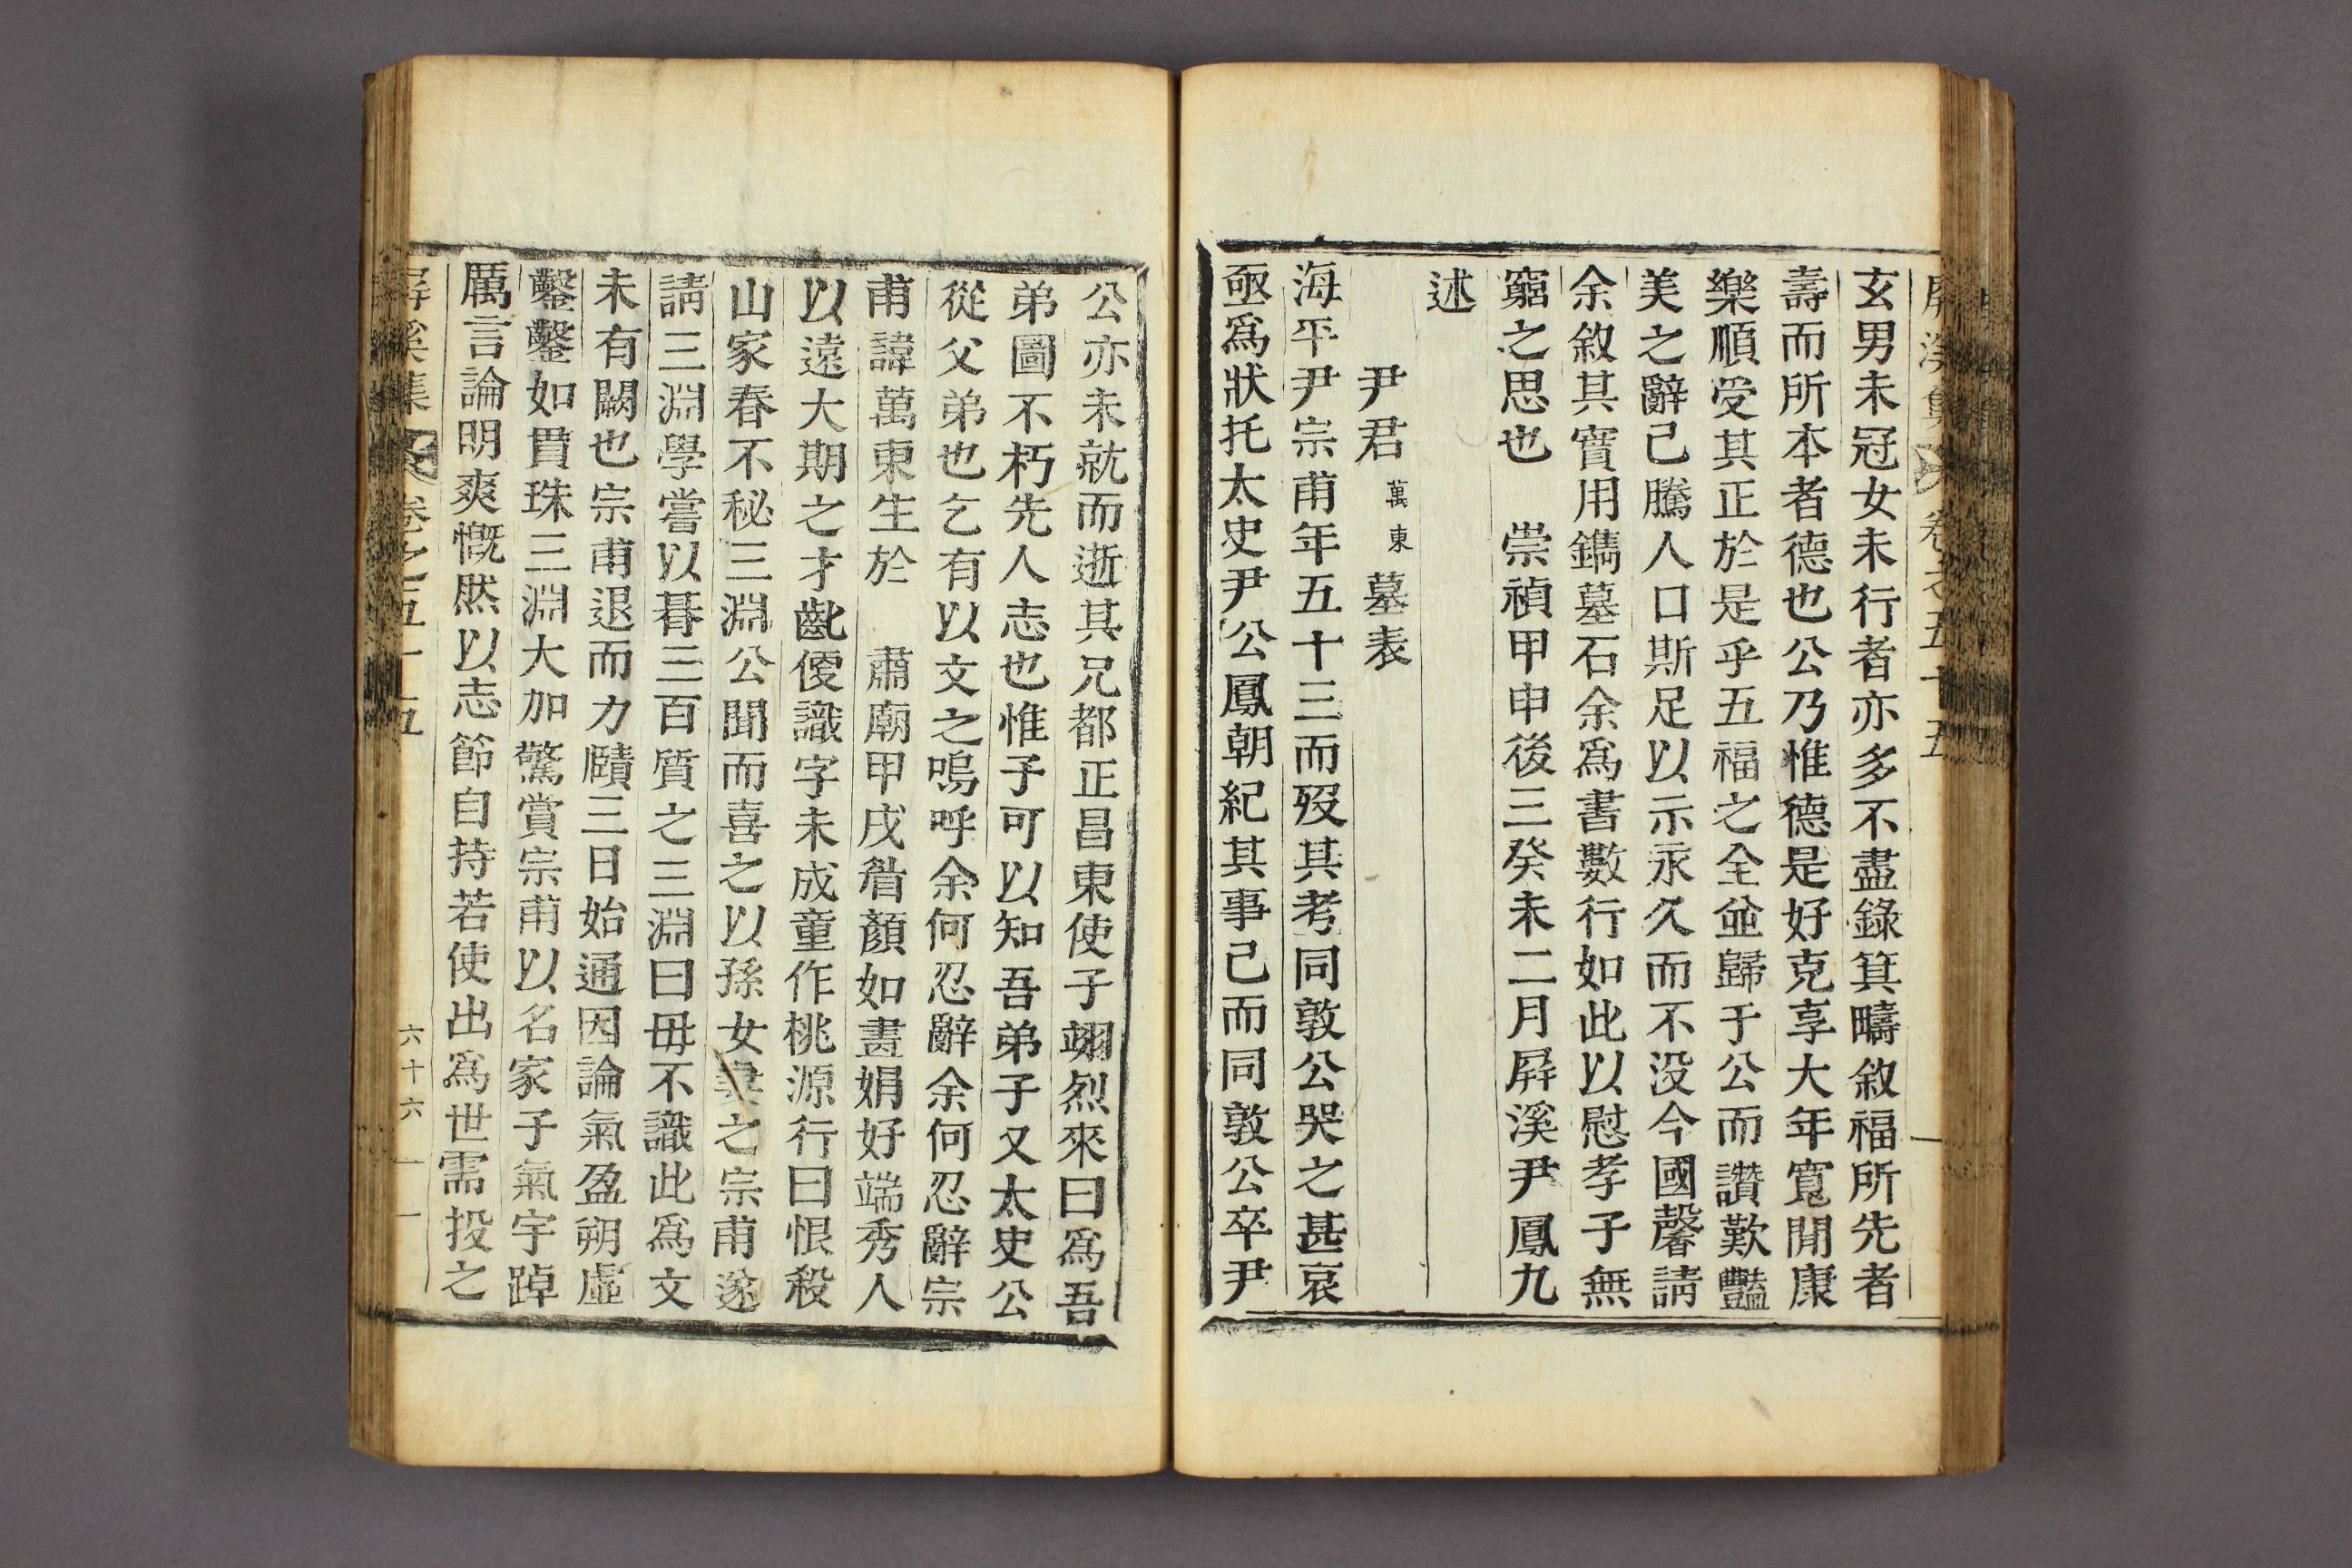 屛溪集 卷之五十五
玄男未冠女未行者亦多不盡錄箕疇敘福所先者
壽而所本者德也公乃惟德是好克享大年寬閒康
樂順受其正於是乎五福之全並歸于公而讚歎豔
美之辭己騰人口斯足以示永久而不没今國馨請
余敘其實用鐫墓石余爲書數行如此以慰孝子無
窮之思也 崇禎甲申後三癸未二月屛溪尹鳳九
述
尹君萬東墓表
海平尹宗甫年五十三而歿其考同敦公哭之甚哀
亟爲狀托太史尹公鳳朝紀其事己而同敦公卒尹
公亦未就而逝其兄都正昌東使子翊烈來曰爲吾
弟圖不朽先人志也惟子可以知吾弟子又太史公
從父弟也乞有以文之嗚呼余何忍辭余何忍辭宗
甫諱萬東生於 肅廟甲戌眉顏如畫娟好端秀人
以遠大期之才齔優識字未成童作桃源行曰恨殺
山家春不秘三淵公聞而喜之以孫女妻之宗甫遂
請三淵學嘗以朞三百質之三淵曰毋不識此爲文
未有闕也宗甫退而力賾三日始通因論氣盈朔虛
鑿鑿如貫珠三淵大加驚賞宗甫以名家子氣宇踔
厲言論明爽慨然以志節自持若使出爲世需投之
屛溪集 卷之五十五 六十六